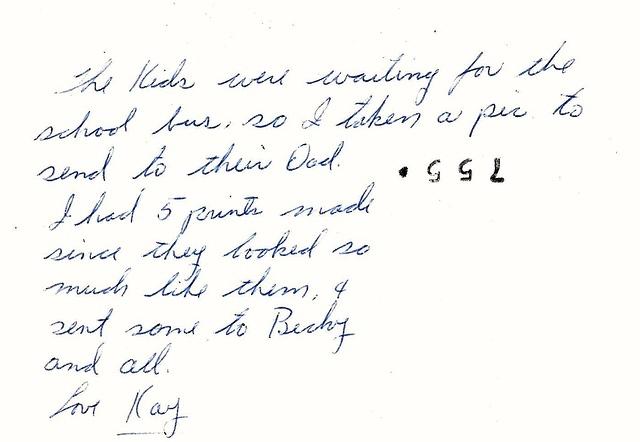 The Kids were waiting for the
school bus, so I taken a pic to
send to their Dad.
755 •
I had 5 prints made
since they looked so
much like them, &
sent some to Becky
and all.
Love Kay